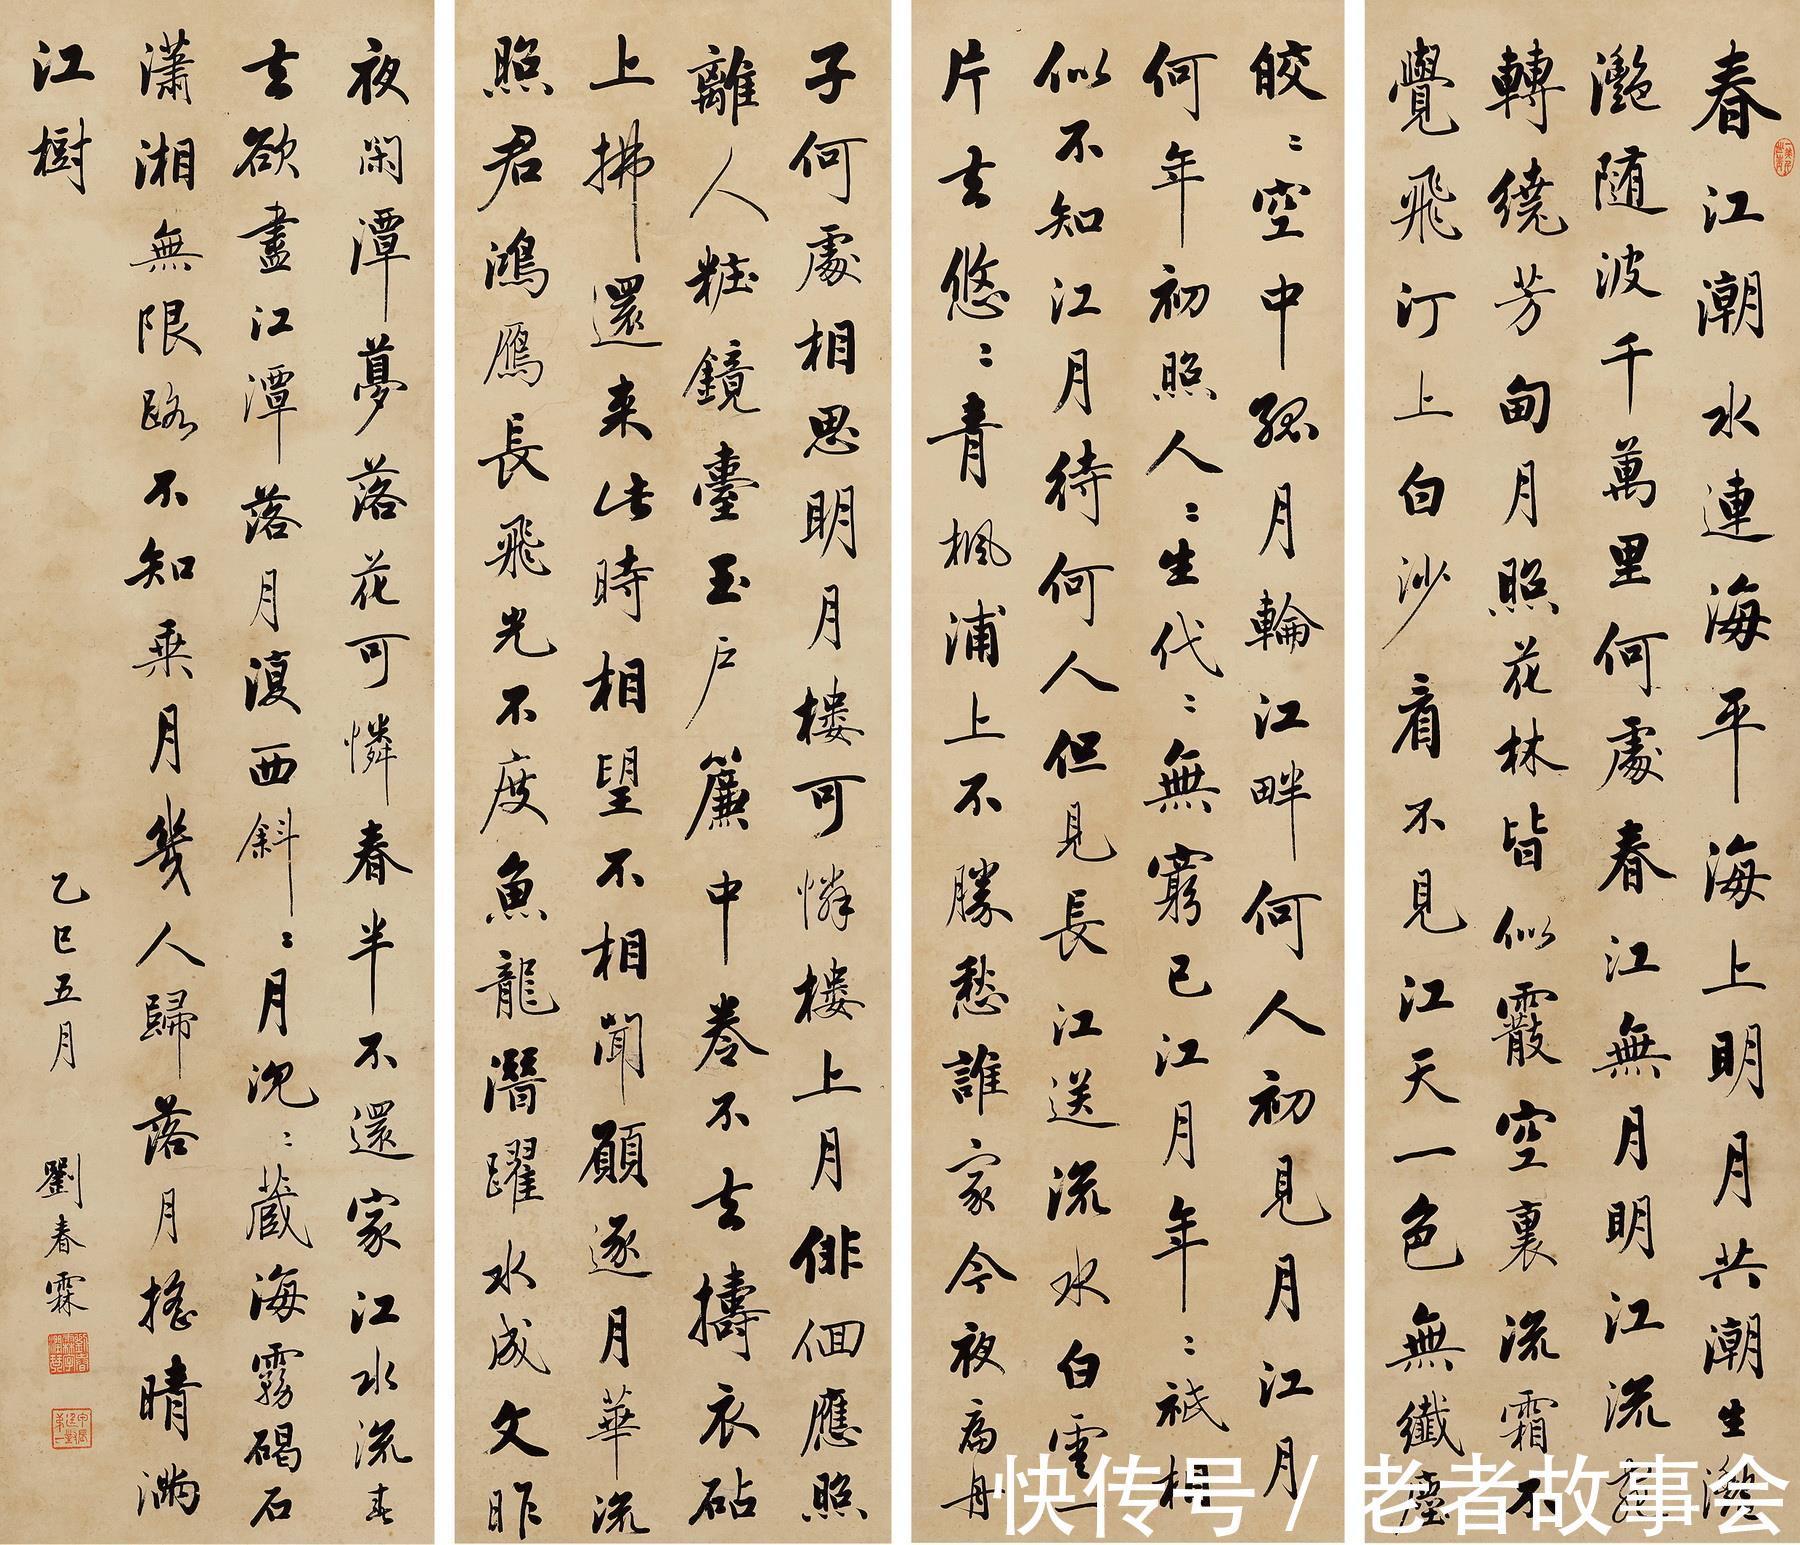 春江潮水連海平海上明月共潮生灩
灩随波千萬里何處春江無月明江流宛
轉繞芳甸月照花林皆似霰空裏流霜不
覺飛汀上白沙看不見江天一色無纖塵
皎〻空中孤月輪江畔何人初見月江月
何年初照人〻生代〻無窮已江月年〻祗相
似不知江月待何人但見長江送流水白雲一
片去悠〻青楓浦上不勝愁誰家今夜扁舟
子何處相思明月樓可憐樓上月俳佪應照
離人粧鏡臺玉戶簾中卷不去擣衣砧
上拂還来此時相望不相聞願逐月華流
照君鴻雁長飛光不度魚龍潛躍水成文昨
夜閑潭夢落花可憐春半不還家江水流春
去欲盡江潭落月復西斜〻月沈〻藏海霧碣石
瀟湘無限路不知乘月幾人歸落月搖晴滿
江樹
乙巳五月 劉春霖
快传号/老者故事会